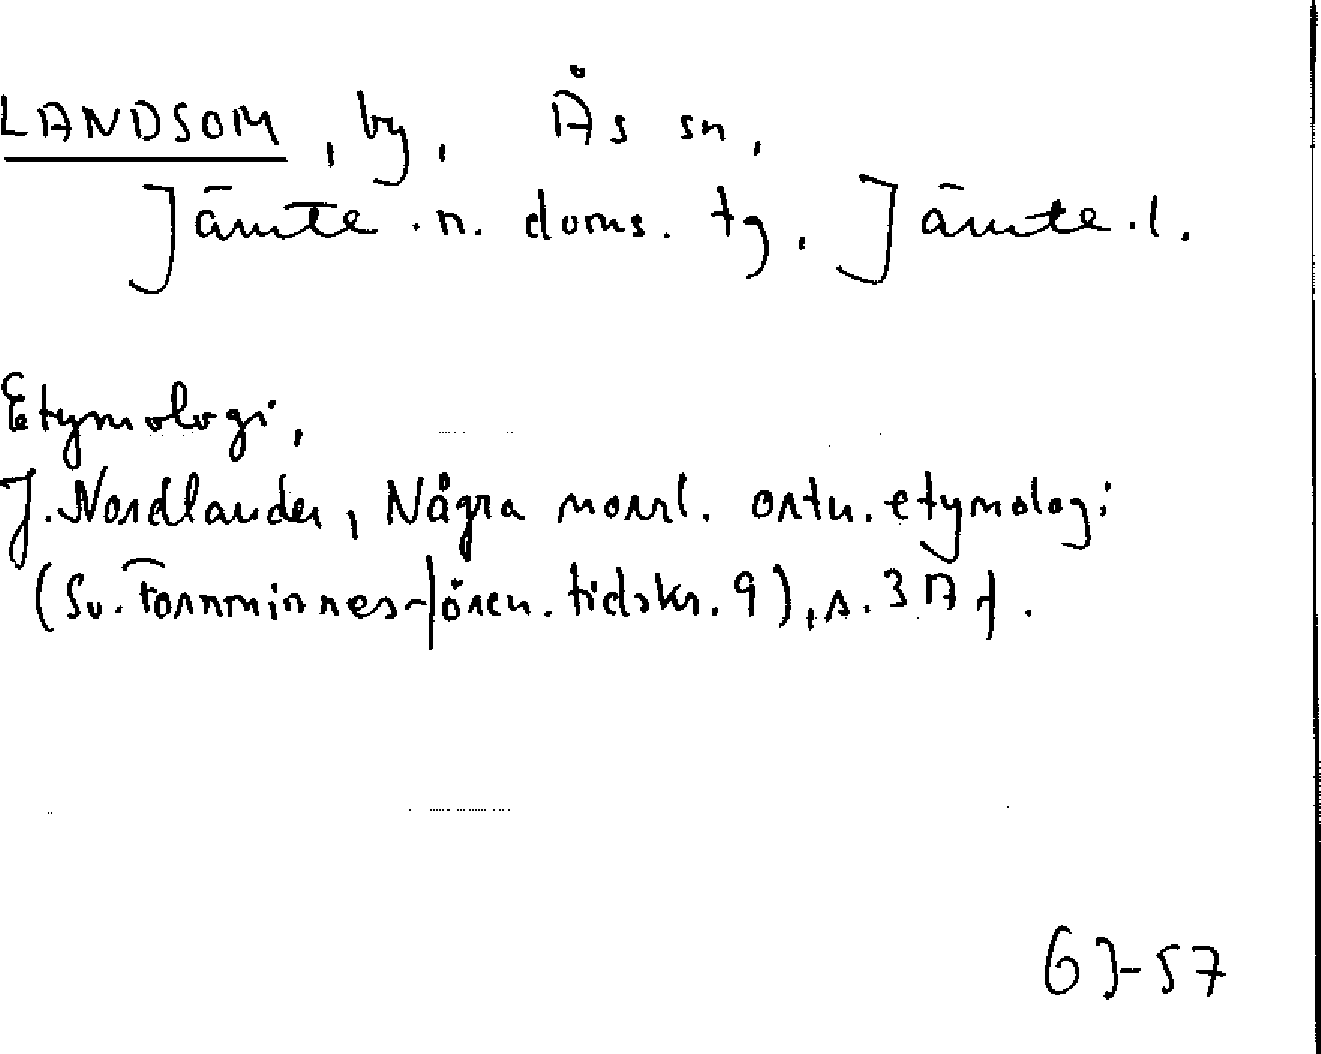 LANDSOM, by, Ås sn,
Jämte.n. doms. tg, Jämte.l.
Etymologi,
J. Nordlander, Några norrl. ortn. etymologi
(Sv. Fornminnes-fören. tidskr. 9), s. f.
63-57